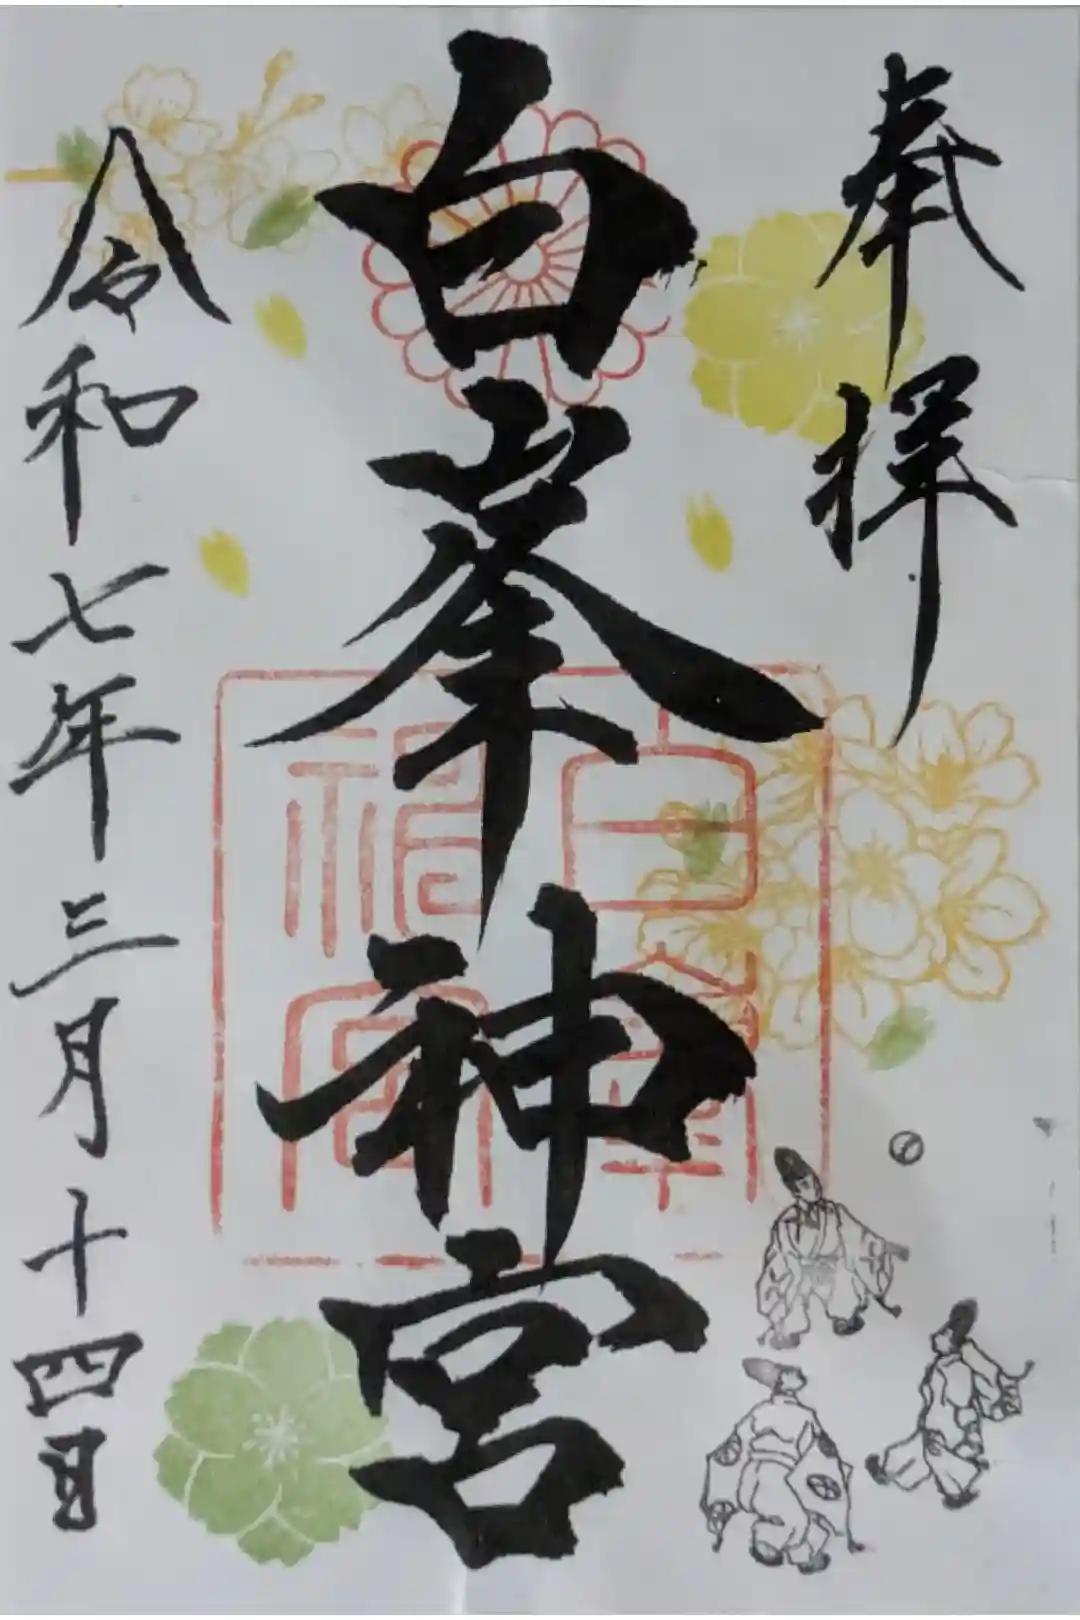 奉拝
白峯神宮
令和七年三月十四日
白峯
神宮